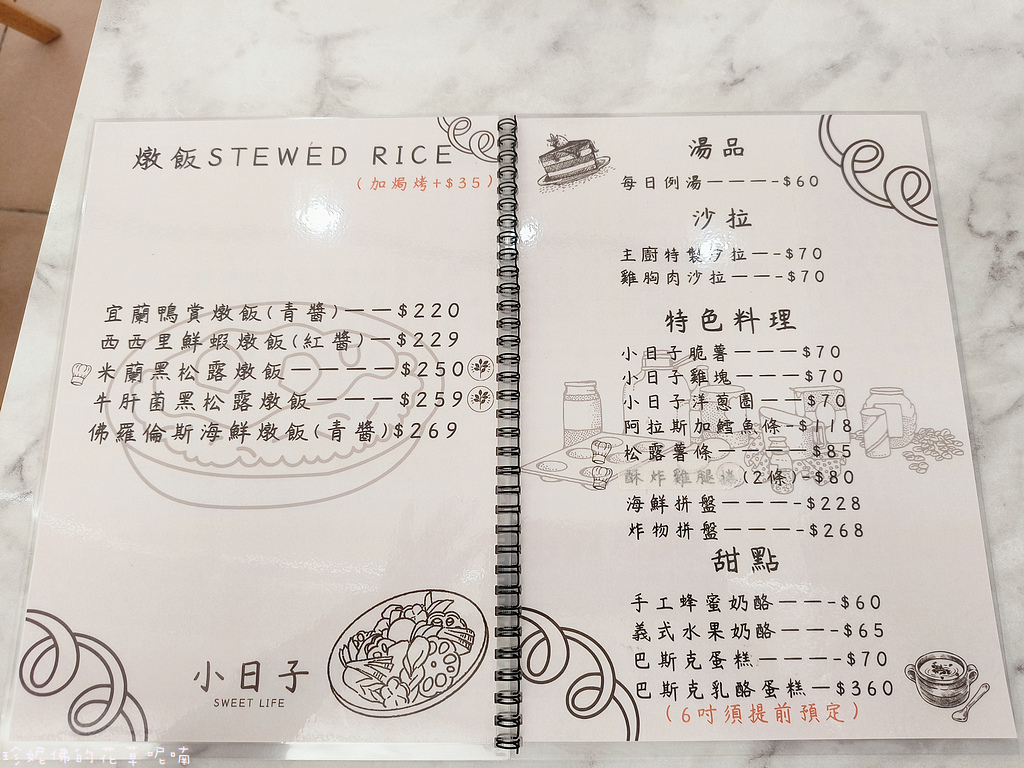 燉飯STEWED RICE
(加焗烤+$35)
宜蘭鴨賞燉飯(青醬)——$220
西西里鮮蝦燉飯(紅醬)—$229
米蘭黑松露燉飯————$250
牛肝菌黑松露燉飯———$259
佛羅倫斯海鮮燉飯(青醬)$269
小日子
SWEET LIFE
湯品
每日例湯———-$60
沙拉
主廚特製沙拉—-$70
雞胸肉沙拉——-$70
特色料理
小日子脆薯———$70
小日子雞塊———-$70
小日子洋蔥圈——-$70
阿拉斯加鱈魚條-$118
松露薯條————$85
酥炸雞腿捲(2條)-$80
海鮮拼盤———-$228
炸物拼盤———-$268
甜點
手工蜂蜜奶酪——-$60
義式水果奶酪——-$65
巴斯克蛋糕———-$70
巴斯克乳酪蛋糕—$360
(6吋須提前預定)
珍妮佛的花草呢喃